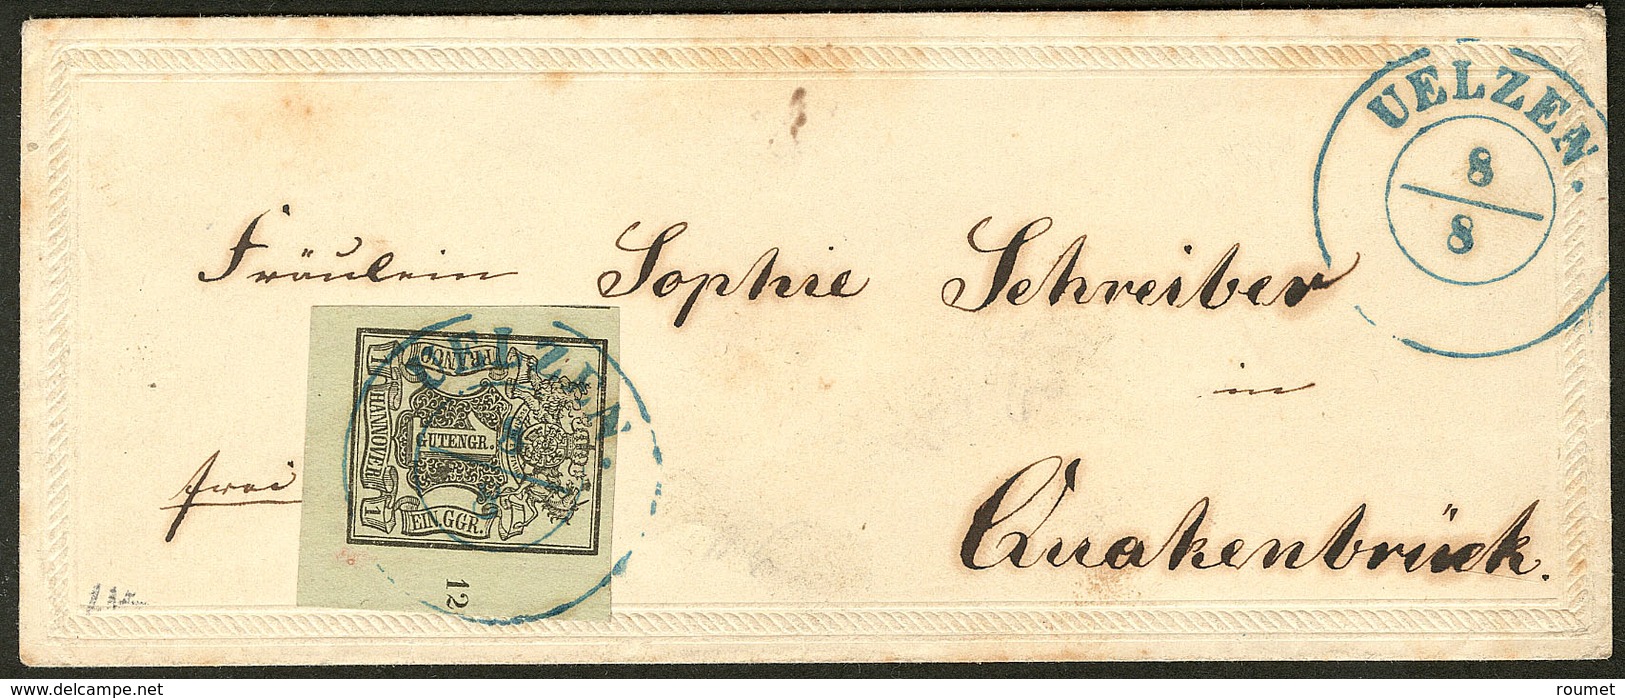 UELZEN.
8
8
Fräulein Sophie Schreiber
in
Quakenbrück.
frei
UELZEN.
FRANCO
HANNOVER
1
1
GUTENGR.
EIN.GGR.
12
www.delcampe.net
roumet